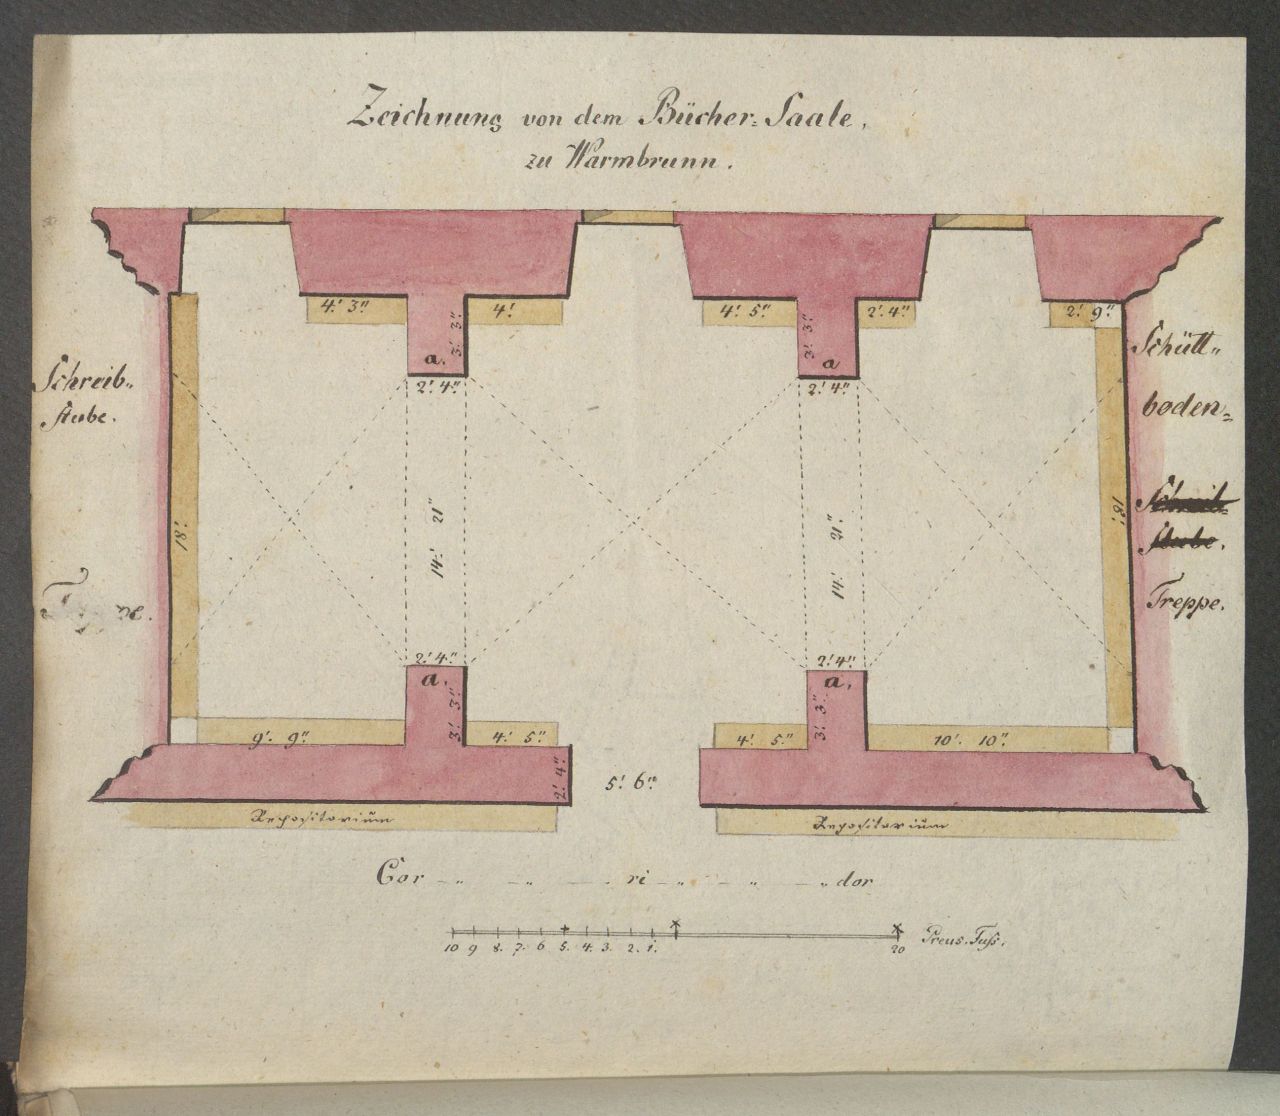 Zeichnung von dem Bücher-Saale,
zu Warmbrunn.
4' 3"
4'
4' 5"
2' 4"
2' 9"
3' 3"
3' 3"
a.
a
2' 4"
2' 4"
Schreib-
stube.
Schütt-
boden-
Schreib-
stube.
Treppe.
18'
18'
14' 21"
14' 21"
2' 4"
2' 4"
a.
a.
3' 3"
3' 3"
9' 9"
4' 5"
4' 5"
10' 10"
2' 4"
5' 6"
Repositorium
Repositorium
Cor ri dor
10 9 8. 7. 6 5. 4. 3. 2. 1. 20 Preus. Fuß.